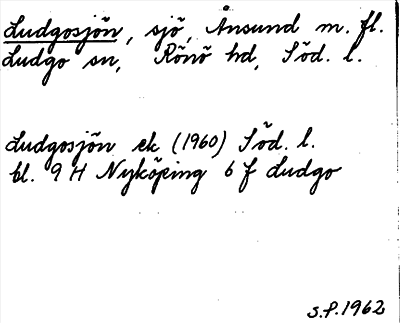 Ludgosjön, sjö, Ånsund m. fl.
Ludgo sn, Rönö hd, Söd. l.
Ludgosjön ek (1960) Söd. l.
bl. 9 H Nyköping 6 f Ludgo
S.P. 1962